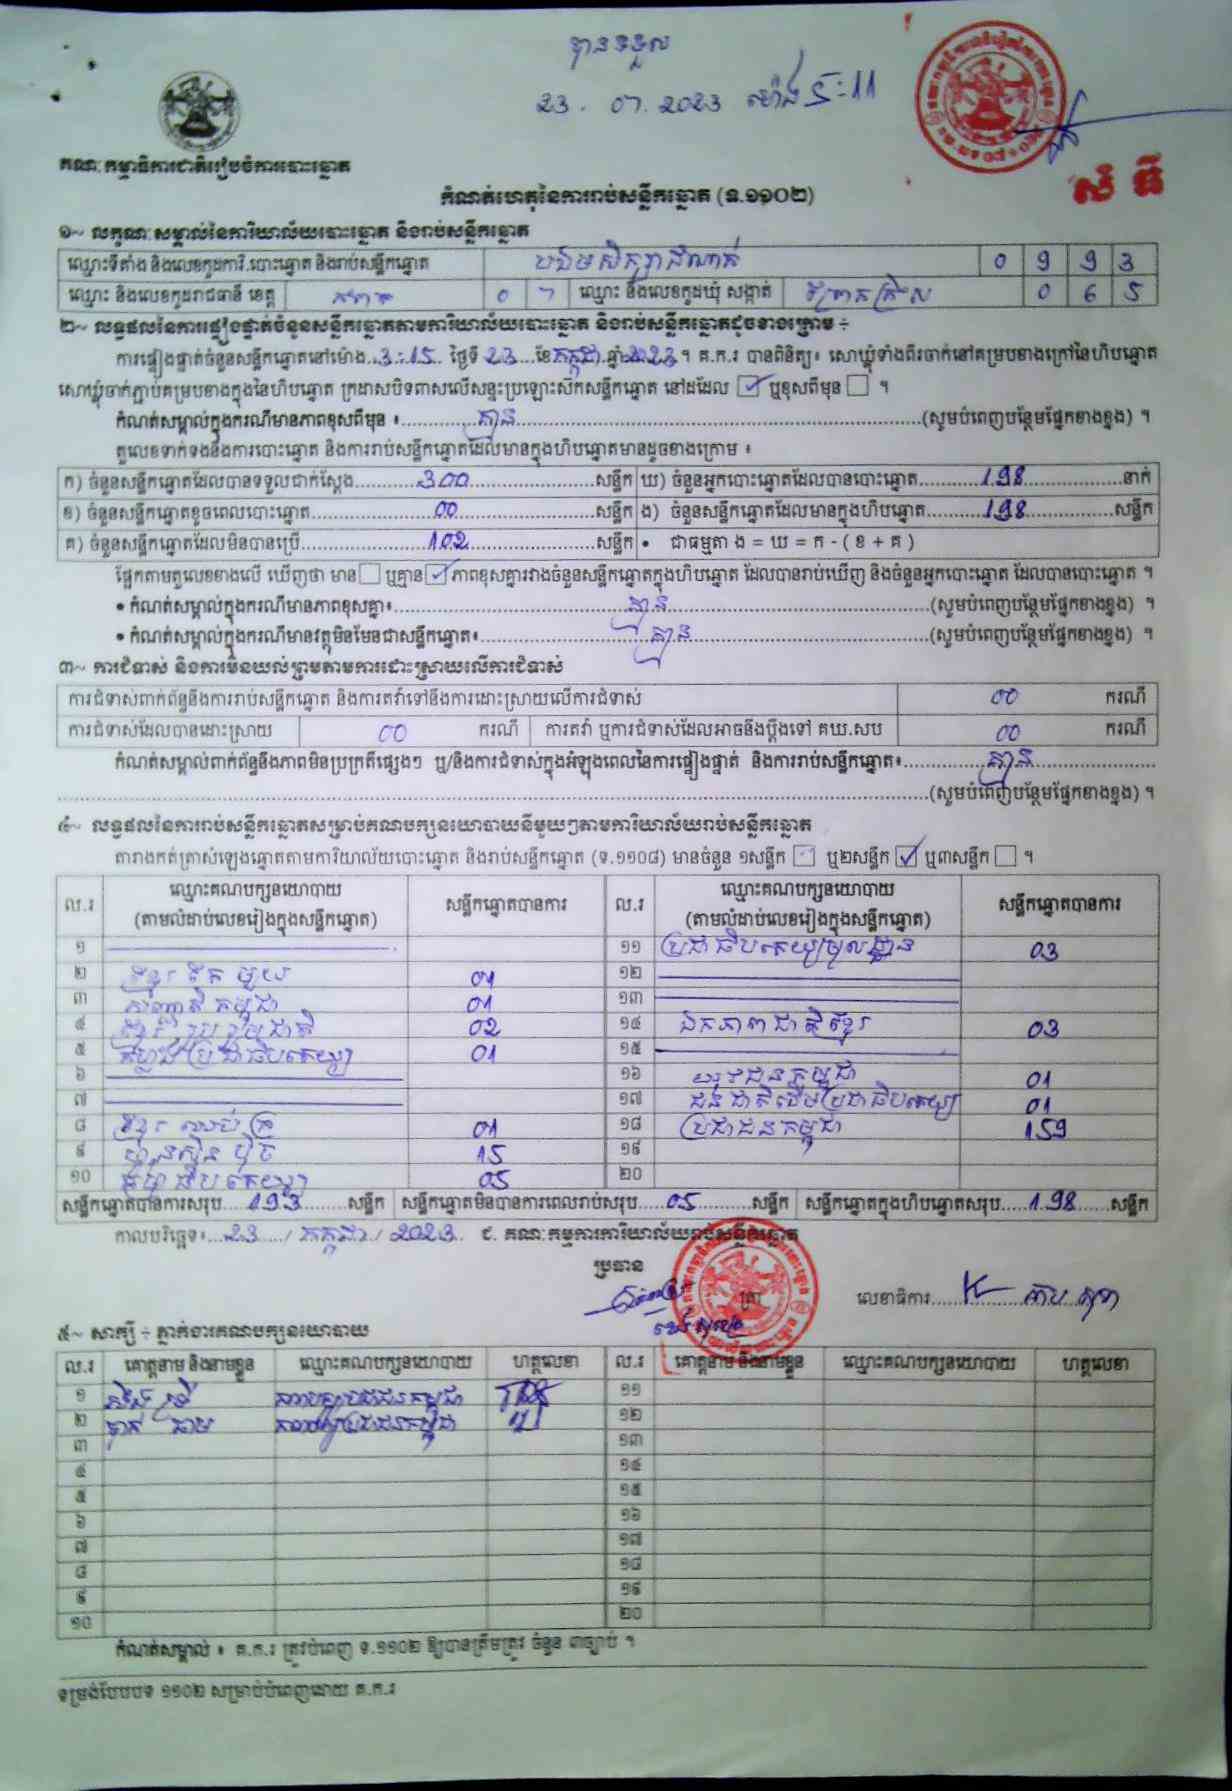 បានទទួល
23 . 07 . 2023 ម៉ោង 5:11
គណៈកម្មាធិការជាតិរៀបចំការបោះឆ្នោត
សំ ធី
កំណត់ហេតុនៃការរាប់សន្លឹកឆ្នោត (ទ.១១០២)
១~ លក្ខណៈសម្គាល់នៃការិយាល័យបោះឆ្នោត និងរាប់សន្លឹកឆ្នោត
ឈ្មោះទីតាំង និងលេខកូដការិ.បោះឆ្នោត និងរាប់សន្លឹកឆ្នោត 0 9 9 3
ឈ្មោះ និងលេខកូដរាជធានី ខេត្ត កំពត 0 7 ឈ្មោះ និងលេខកូដឃុំ សង្កាត់ 0 6 5
២~ លទ្ធផលនៃការផ្ទៀងផ្ទាត់ចំនួនសន្លឹកឆ្នោតតាមការិយាល័យបោះឆ្នោត និងរាប់សន្លឹកឆ្នោតដូចខាងក្រោម ÷
ការផ្ទៀងផ្ទាត់ចំនួនសន្លឹកឆ្នោតនៅម៉ោង 3:15 ថ្ងៃទី 23 ខែ កក្កដា ឆ្នាំ 2023 ។ គ.ក.រ បានពិនិត្យ៖ សោឃ្លុំទាំងពីរចាក់នៅគម្របខាងក្រៅនៃហិបឆ្នោត
សោឃ្លុំចាក់ភ្ជាប់គម្របខាងក្នុងនៃហិបឆ្នោត ក្រដាសបិទពាសលើសន្ទះប្រឡោះស៊កសន្លឹកឆ្នោត នៅដដែល ✓ ឬខុសពីមុន ។
កំណត់សម្គាល់ក្នុងករណីមានភាពខុសពីមុន ៖ គ្មាន (សូមបំពេញបន្ថែមផ្នែកខាងខ្នង) ។
តួលេខទាក់ទងនឹងការបោះឆ្នោត និងការរាប់សន្លឹកឆ្នោតដែលមានក្នុងហិបឆ្នោតមានដូចខាងក្រោម ៖
ក) ចំនួនសន្លឹកឆ្នោតដែលបានទទួលជាក់ស្តែង 300 សន្លឹក ឃ) ចំនួនអ្នកបោះឆ្នោតដែលបានបោះឆ្នោត 198 នាក់
ខ) ចំនួនសន្លឹកឆ្នោតខូចពេលបោះឆ្នោត 00 សន្លឹក ង) ចំនួនសន្លឹកឆ្នោតដែលមានក្នុងហិបឆ្នោត 198 សន្លឹក
គ) ចំនួនសន្លឹកឆ្នោតដែលមិនបានប្រើ 102 សន្លឹក • ជាធម្មតា ង = ឃ = ក - ( ខ + គ )
ផ្អែកតាមតួលេខខាងលើ ឃើញថា មាន ឬគ្មាន ✓ ភាពខុសគ្នារវាងចំនួនសន្លឹកឆ្នោតក្នុងហិបឆ្នោត ដែលបានរាប់ឃើញ និងចំនួនអ្នកបោះឆ្នោត ដែលបានបោះឆ្នោត ។
• កំណត់សម្គាល់ក្នុងករណីមានភាពខុសគ្នា៖ គ្មាន (សូមបំពេញបន្ថែមផ្នែកខាងខ្នង) ។
• កំណត់សម្គាល់ក្នុងករណីមានវត្ថុមិនមែនជាសន្លឹកឆ្នោត៖ គ្មាន (សូមបំពេញបន្ថែមផ្នែកខាងខ្នង) ។
៣~ ការជំទាស់ និងការមិនយល់ព្រមតាមការដោះស្រាយលើការជំទាស់
ការជំទាស់ពាក់ព័ន្ធនឹងការរាប់សន្លឹកឆ្នោត និងការតវ៉ាទៅនឹងការដោះស្រាយលើការជំទាស់ 00 ករណី
ការជំទាស់ដែលបានដោះស្រាយ 00 ករណី ការតវ៉ា ឬការជំទាស់ដែលអាចនឹងប្តឹងទៅ គឃ.សប 00 ករណី
កំណត់សម្គាល់ពាក់ព័ន្ធនឹងភាពមិនប្រក្រតីផ្សេងៗ ឬ/និងការជំទាស់ក្នុងអំឡុងពេលនៃការផ្ទៀងផ្ទាត់ និងការរាប់សន្លឹកឆ្នោត៖ គ្មាន
(សូមបំពេញបន្ថែមផ្នែកខាងខ្នង) ។
៤~ លទ្ធផលនៃការរាប់សន្លឹកឆ្នោតសម្រាប់គណបក្សនយោបាយនីមួយៗតាមការិយាល័យរាប់សន្លឹកឆ្នោត
តារាងកត់ត្រាសំឡេងឆ្នោតតាមការិយាល័យបោះឆ្នោត និងរាប់សន្លឹកឆ្នោត (ទ.១១០៨) មានចំនួន ១សន្លឹក ឬ២សន្លឹក ✓ ឬ៣សន្លឹក ។
ល.រ ឈ្មោះគណបក្សនយោបាយ (តាមលំដាប់លេខរៀងក្នុងសន្លឹកឆ្នោត) សន្លឹកឆ្នោតបានការ ល.រ ឈ្មោះគណបក្សនយោបាយ (តាមលំដាប់លេខរៀងក្នុងសន្លឹកឆ្នោត) សន្លឹកឆ្នោតបានការ
១ ១១ ប្រជាធិបតេយ្យមូលដ្ឋាន 03
២ ខ្មែរតែមួយ 01 ១២
៣ កម្ពុជា 01 ១៣
៤ ខ្មែររួបរួមជាតិ 02 ១៤ ឯកភាពជាតិខ្មែរ 03
៥ ប្រជាធិបតេយ្យ 01 ១៥
៦ ១៦ យុវជនកម្ពុជា 01
៧ ១៧ ជនជាតិដើមប្រជាធិបតេយ្យ 01
៨ ខ្មែរ 01 ១៨ ប្រជាជនកម្ពុជា 159
៩ ហ៊្វុនស៊ិនប៉ិច 15 ១៩
១០ ធិបតេយ្យ 05 ២០
សន្លឹកឆ្នោតបានការសរុប 193 សន្លឹក សន្លឹកឆ្នោតមិនបានការពេលរាប់សរុប 05 សន្លឹក សន្លឹកឆ្នោតក្នុងហិបឆ្នោតសរុប 198 សន្លឹក
កាលបរិច្ឆេទ៖ 23 / កក្កដា / 2023 ជ. គណៈកម្មការការិយាល័យរាប់សន្លឹកឆ្នោត
ប្រធាន
ត្រា លេខាធិការ
៥~ សាក្សី ÷ ភ្នាក់ងារគណបក្សនយោបាយ
ល.រ គោត្តនាម និងនាមខ្លួន ឈ្មោះគណបក្សនយោបាយ ហត្ថលេខា ល.រ គោត្តនាម និងនាមខ្លួន ឈ្មោះគណបក្សនយោបាយ ហត្ថលេខា
១ គណបក្សប្រជាជនកម្ពុជា ១១
២ គណបក្សប្រជាជនកម្ពុជា ១២
៣ ១៣
៤ ១៤
៥ ១៥
៦ ១៦
៧ ១៧
៨ ១៨
៩ ១៩
១០ ២០
កំណត់សម្គាល់ ៖ គ.ក.រ ត្រូវបំពេញ ទ.១១០២ ឱ្យបានត្រឹមត្រូវ ចំនួន ៣ច្បាប់ ។
ទម្រង់បែបបទ ១១០២ សម្រាប់បំពេញដោយ គ.ក.រ